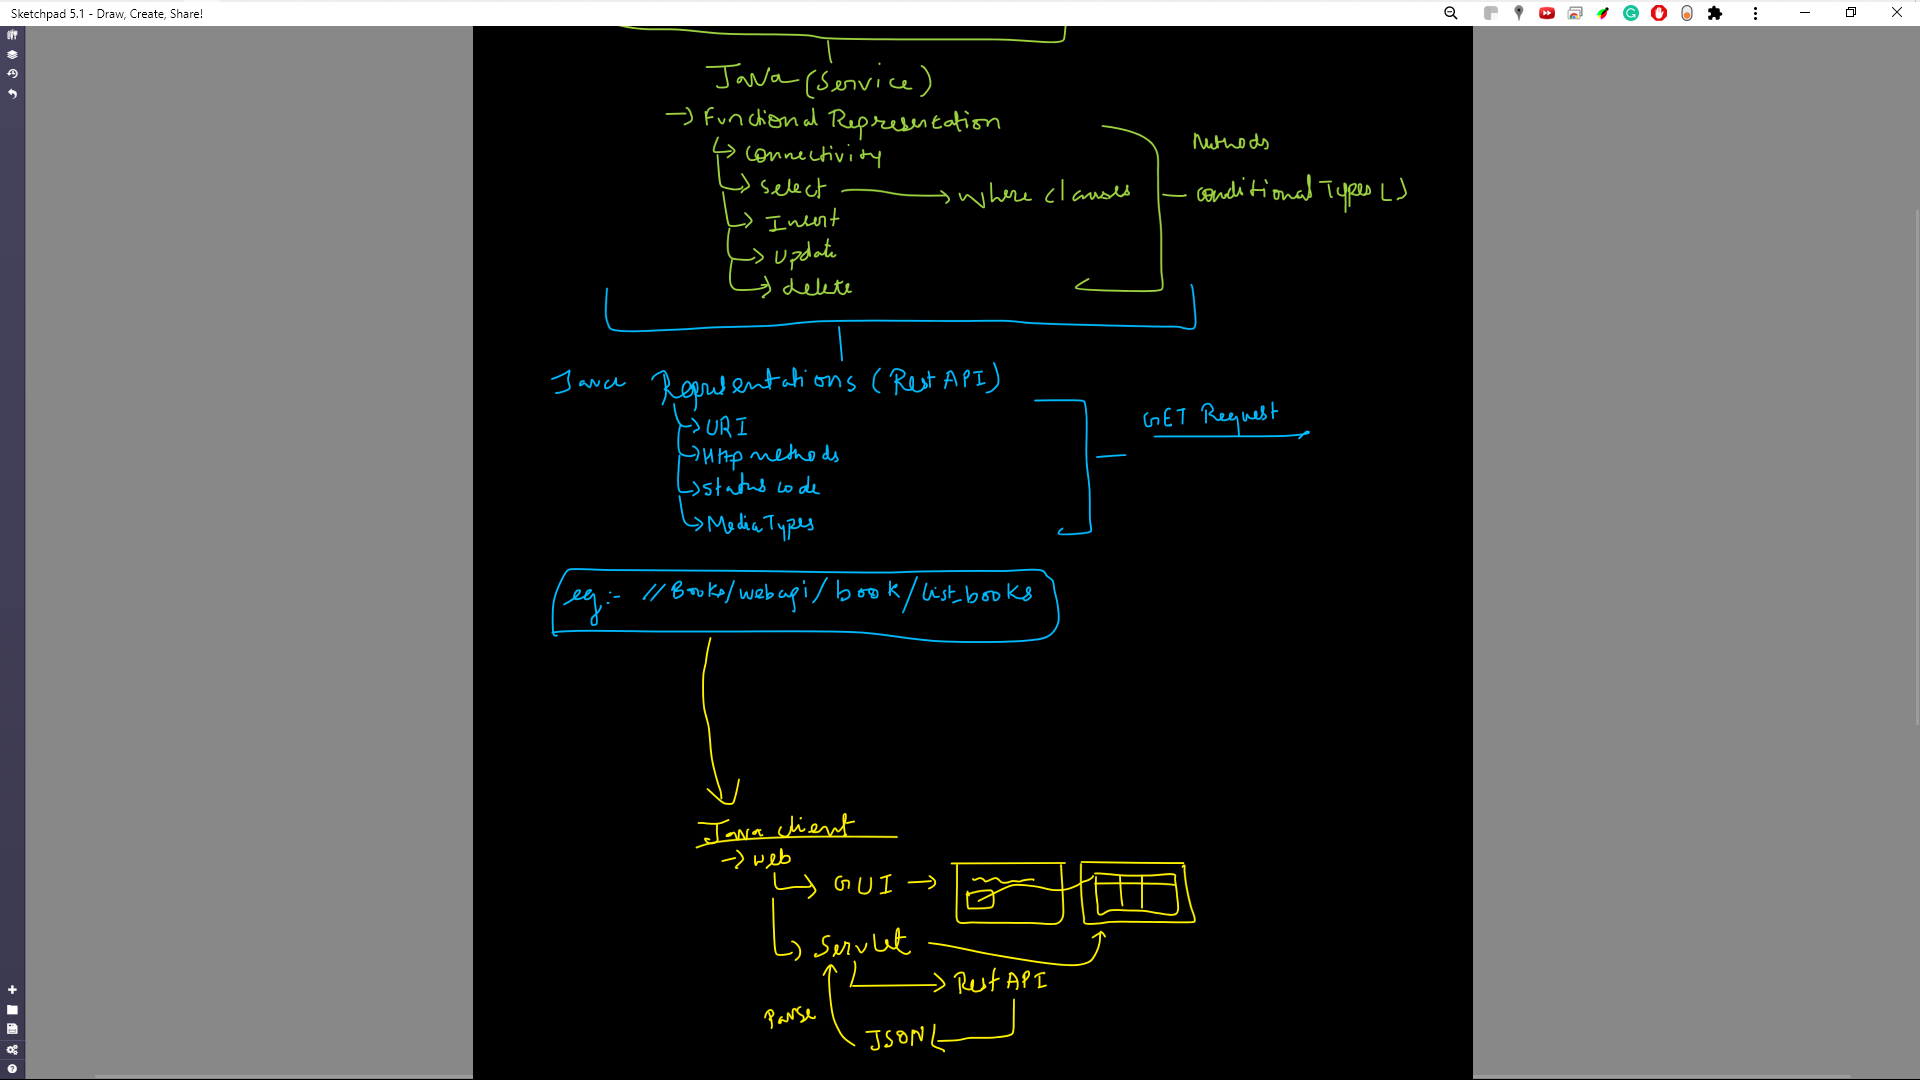 Sketchpad 5.1 - Draw, Create, Share!
Java (Service)
→ Functional Representation
Connectivity
Select → where clauses
Insert
update
delete
Methods
conditional Types ( )
Java Representations (Rest API)
URI
Http methods
status code
Media Types
GET Request
eg:- //Books/webapi/book/list_books
Java client
→ web
GUI →
Servlet
Rest API
Parse
JSON